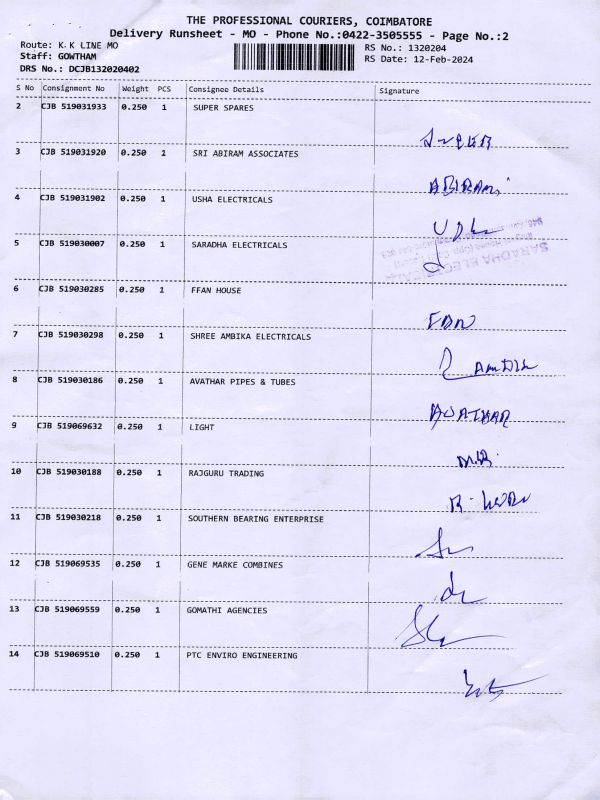 THE PROFESSIONAL COURIERS, COIMBATORE
Delivery Runsheet - MO - Phone No.:0422-3505555 - Page No.:2
Route: K K LINE MO RS No.: 1320204
Staff: GOWTHAM RS Date: 12-Feb-2024
DRS No.: DCJB132020402
S No Consignment No Weight PCS Consignee Details Signature
2 CJB 519031933 0.250 1 SUPER SPARES
SUPER
3 CJB 519031920 0.250 1 SRI ABIRAM ASSOCIATES
ABIRAMI
4 CJB 519031902 0.250 1 USHA ELECTRICALS
5 CJB 519030007 0.250 1 SARADHA ELECTRICALS
SARADHA ELECTRICALS
6 CJB 519030285 0.250 1 FFAN HOUSE
FAN
7 CJB 519030298 0.250 1 SHREE AMBIKA ELECTRICALS
8 CJB 519030186 0.250 1 AVATHAR PIPES & TUBES
AVATHAR
9 CJB 519069632 0.250 1 LIGHT
10 CJB 519030188 0.250 1 RAJGURU TRADING
11 CJB 519030218 0.250 1 SOUTHERN BEARING ENTERPRISE
12 CJB 519069535 0.250 1 GENE MARKE COMBINES
13 CJB 519069559 0.250 1 GOMATHI AGENCIES
14 CJB 519069510 0.250 1 PTC ENVIRO ENGINEERING